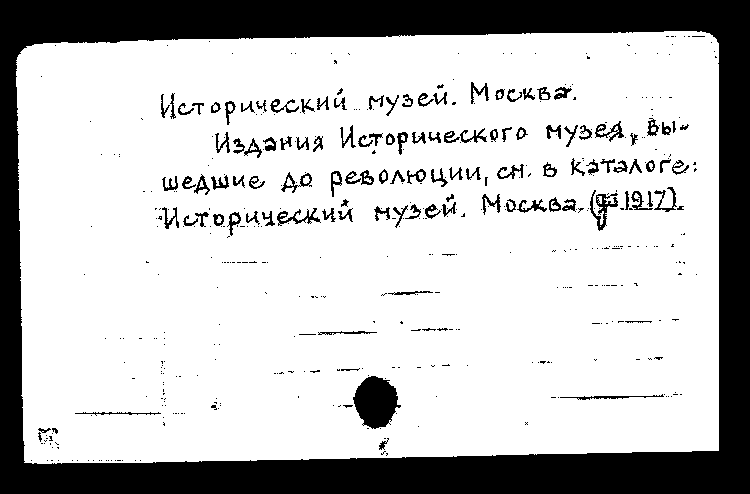 Исторический музей. Москва.
Издания Исторического музея, вы-
шедшие до революции, см. в каталоге:
Исторический музей. Москва (до 1917).